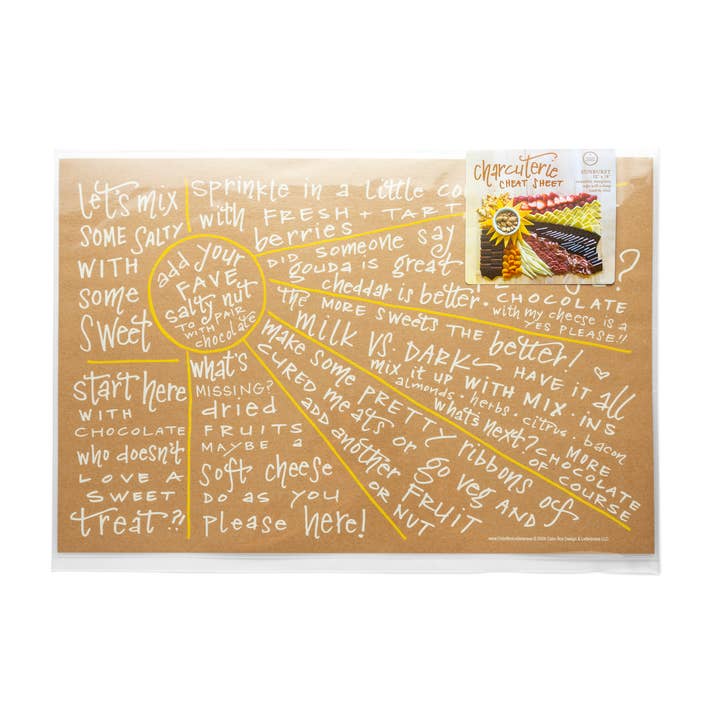 let's mix
SOME SALTY
WITH
some
sweet
sprinkle in a little
with FRESH + TART
berries
add your
FAVE
salty nut
TO PAIR
WITH
chocolate
DID someone say
gouda is great
cheddar is better.
?
CHOCOLATE
with my cheese is a
YES PLEASE!!
the MORE SWEETS THE better!
milk VS. DARK
HAVE IT all
mix it up WITH MIX.INS
almonds. herbs. citrus. bacon
what's next?
MORE
CHOCOLATE
OF COURSE
make some PRETTY ribbons of
CURED meats or go veg AND
ADD another FRUIT
OR NUT
start here
WITH
CHOCOLATE
who doesn't
LOVE A
SWEET
treat?!
what's
MISSING?
dried
FRUITS
MAYBE a
soft cheese
DO AS YOU
please here!
charcuterie
CHEAT SHEET
SUNBURST
12" x 18"